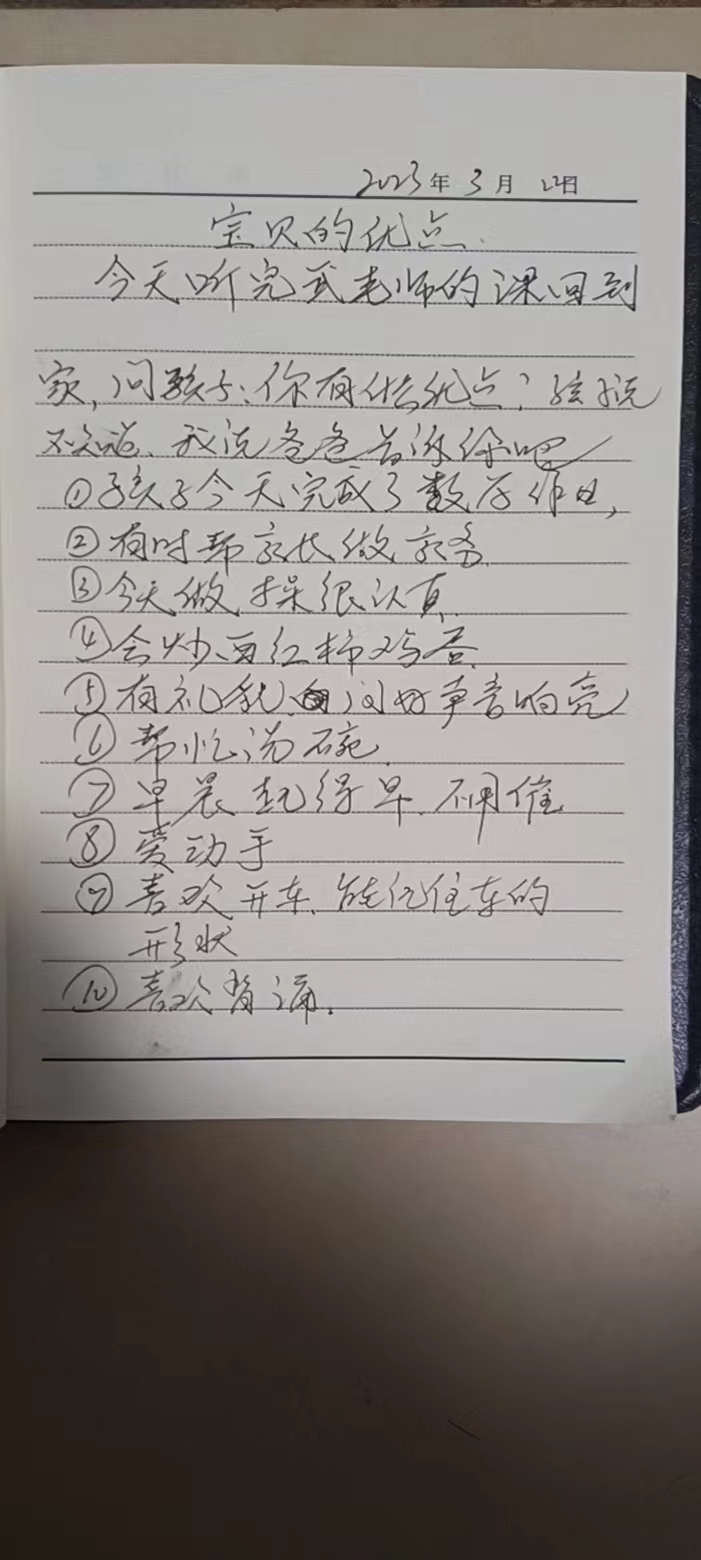 2023年3月12日
宝贝的优点.
今天听完武老师的课回到
家,问孩子:你有什么优点?孩子说
不知道.我说爸爸告诉你吧
①孩子今天完成了数学作业,
②有时帮家长做家务.
③今天做操很认真.
④会炒西红柿鸡蛋.
⑤有礼貌,问好声音响亮
⑥帮忙洗碗.
⑦早晨起得早.不用催
⑧爱动手
⑨喜欢开车.能记住车的
形状
⑩喜欢背诵.